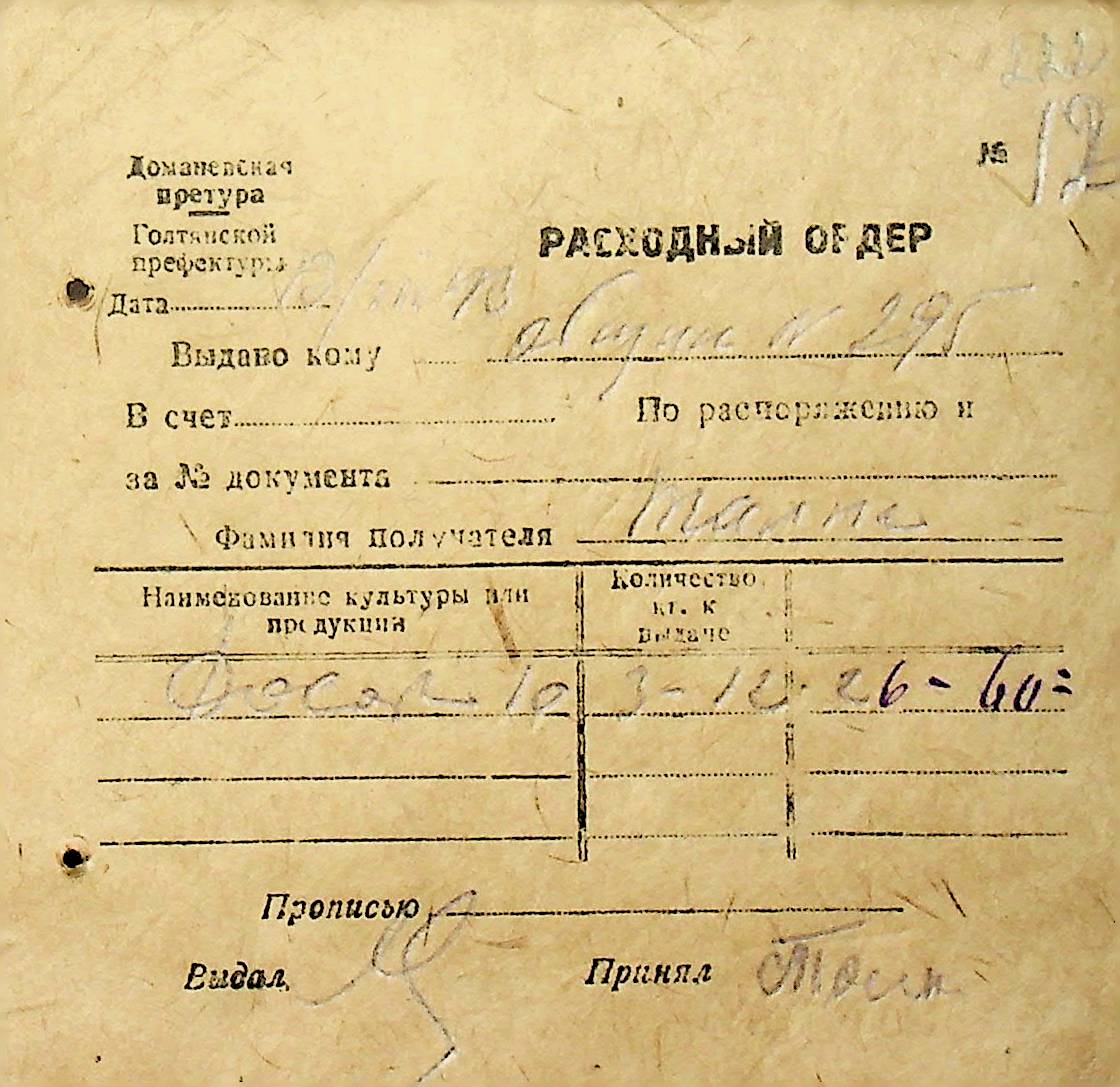 222
№ 12
Доманевская
претура
Голтянской
префектуры
РАСХОДНЫЙ ОРДЕР
Дата
Выдано кому общин N 295
В счет По распоряжению и
за № документа
Фамилия получателя
Наименование культуры или продукции
Количество кг. к выдаче
10 3-12. 26-60=
Прописью
Выдал Принял